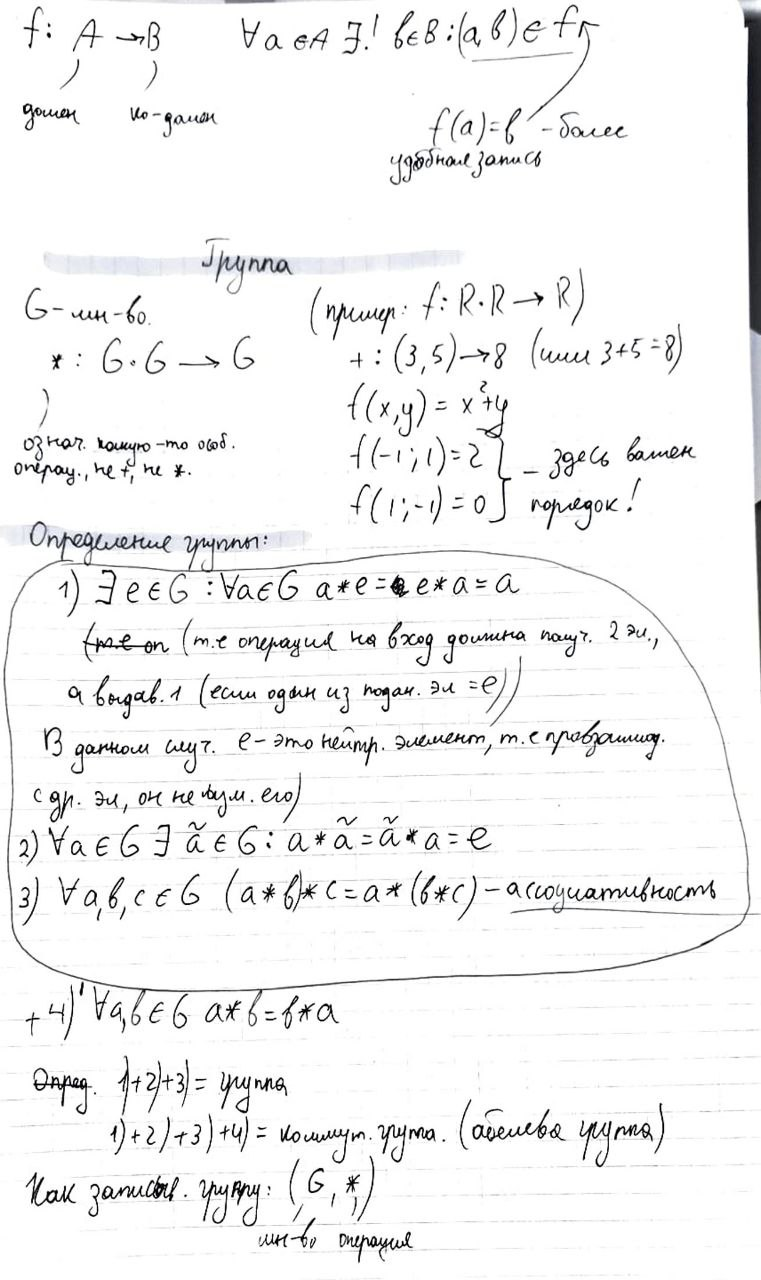 f: A → B ∀a∈A ∃! b∈B : (a,b) ∈ f
домен ко-домен
f(a)=b - более
удобная запись
Группа
G - мн-во. (пример: f: R·R → R)
* : G·G → G + : (3,5)→8 (или 3+5=8)
f(x,y) = x²+y
означ. какую-то особ. f(-1;1)=2 - здесь важен
операц., не +, не *. f(1;-1)=0 порядок!
Определение группы:
1) ∃e∈G : ∀a∈G a*e = e*a = a
(т.е оп (т.е операция на вход должна получ. 2 эл.,
а выдав. 1 (если один из подан. эл = e))
В данном случ. e - это нейтр. элемент, т.е
с др. эл, он не его)
2) ∀a∈G ∃ ã∈G : a*ã = ã*a = e
3) ∀a,b,c∈G (a*b)*c = a*(b*c) - ассоциативность
+ 4) ∀a,b∈G a*b = b*a
Опред. 1)+2)+3) = группа
1)+2)+3)+4) = коммут. група. (абелева группа)
Как записыв. группу: (G, *)
мн-во операция